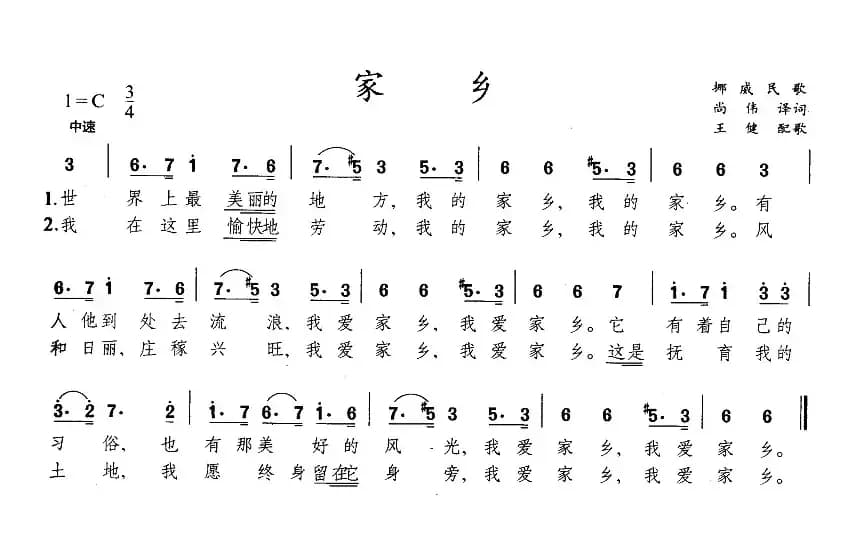 家 乡
1=C 3/4
中速
挪威民歌
尚伟 译词
王健 配歌
3 | 6· 7 i 7· 6 | 7· #5 3 5· 3 | 6 6 #5· 3 | 6 6 3 |
1.世 界上最 美丽的 地 方,我的 家 乡,我的 家 乡。有
2.我 在这里 愉快地 劳 动,我的 家 乡,我的 家 乡。风
6· 7 i 7· 6 | 7· #5 3 5· 3 | 6 6 #5· 3 | 6 6 7 | i· 7 i 3 3 |
人他到 处去 流 浪,我爱 家 乡,我爱 家 乡。它 有着自 己的
和日丽,庄稼 兴 旺,我爱 家 乡,我爱 家 乡。这是 抚 育 我的
3· 2 7· 2 | i· 7 6· 7 i· 6 | 7· #5 3 5· 3 | 6 6 #5· 3 | 6 6 ‖
习 俗,也 有那美 好的 风 光,我爱 家 乡,我爱 家 乡。
土 地,我 愿 终身 留在它 身 旁,我爱 家 乡,我爱 家 乡。